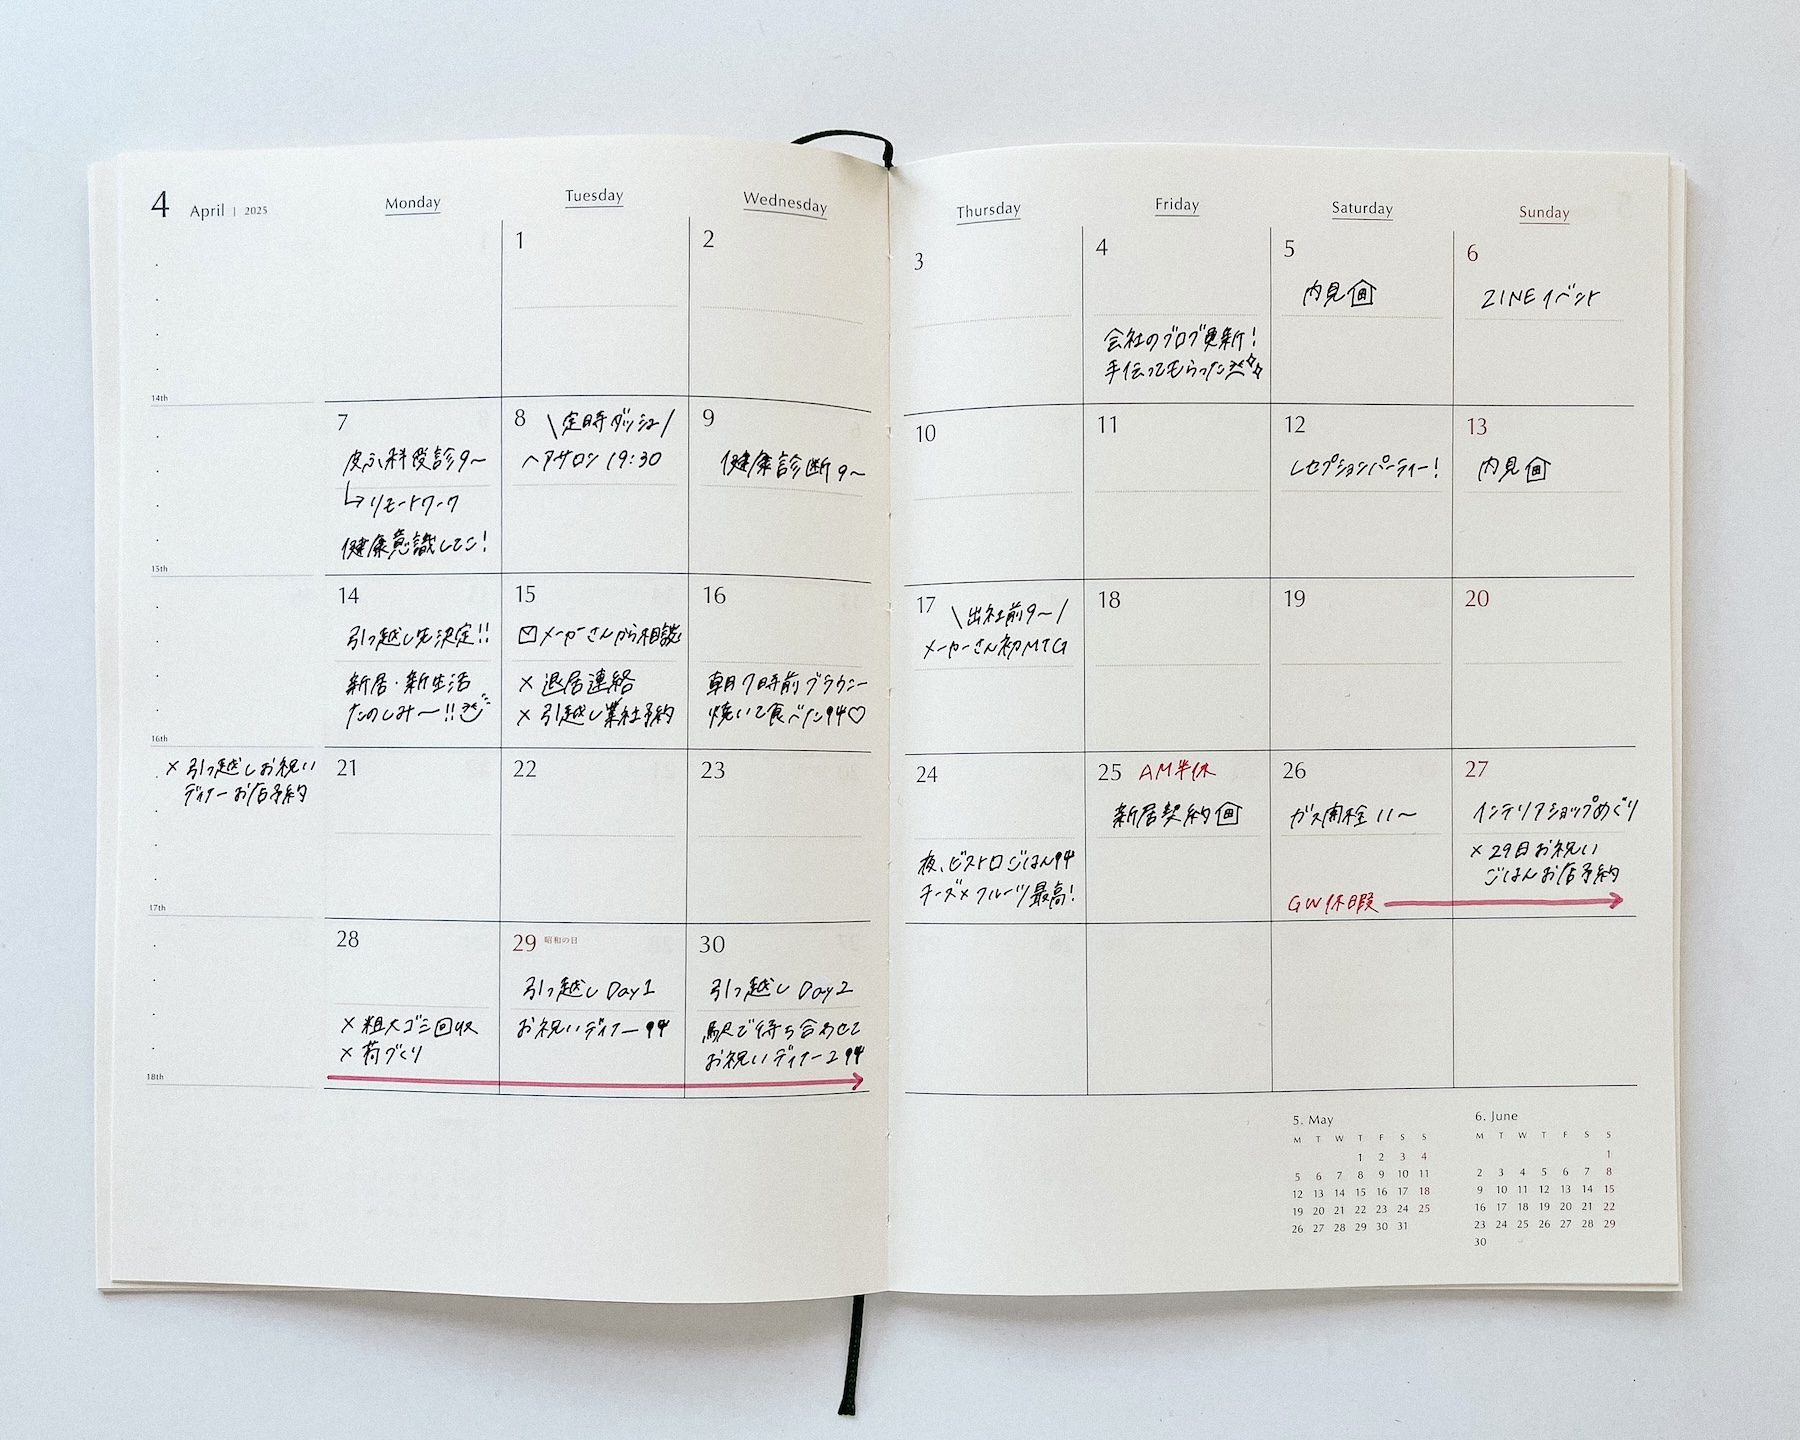 4 April | 2025
Monday
Tuesday
Wednesday
Thursday
Friday
Saturday
Sunday
1
2
3
4
会社のブログ更新!
手伝ってもらった
5
内見
6
ZINEイベント
14th
7
皮ふ科受診9〜
↳リモートワーク
健康意識してこ!
8 \定時ダッシュ/
ヘアサロン 19:30
9
健康診断9〜
10
11
12
レセプションパーティー!
13
内見
15th
14
引っ越し先決定!!
新居・新生活
たのしみ〜!!
15
メーカーさんから相談
× 退居連絡
× 引越し業社予約
16
朝7時前ブラウニー
焼いて食べた
17 \出社前9〜/
メーカーさん初MTG
18
19
20
16th
× 引っ越しお祝い
ディナーお店予約
21
22
23
24
夜、ビストロごはん
チーズ×フルーツ最高!
25 AM半休
新居契約
26
ガス開栓 11〜
GW休暇
27
インテリアショップめぐり
× 29日お祝い
ごはんお店予約
17th
28
× 粗大ゴミ回収
× 荷づくり
29 昭和の日
引っ越し Day1
お祝いディナー
30
引っ越し Day2
駅で待ち合わせて
お祝いディナー2
18th
5. May
M T W T F S S
1 2 3 4
5 6 7 8 9 10 11
12 13 14 15 16 17 18
19 20 21 22 23 24 25
26 27 28 29 30 31
6. June
M T W T F S S
1
2 3 4 5 6 7 8
9 10 11 12 13 14 15
16 17 18 19 20 21 22
23 24 25 26 27 28 29
30